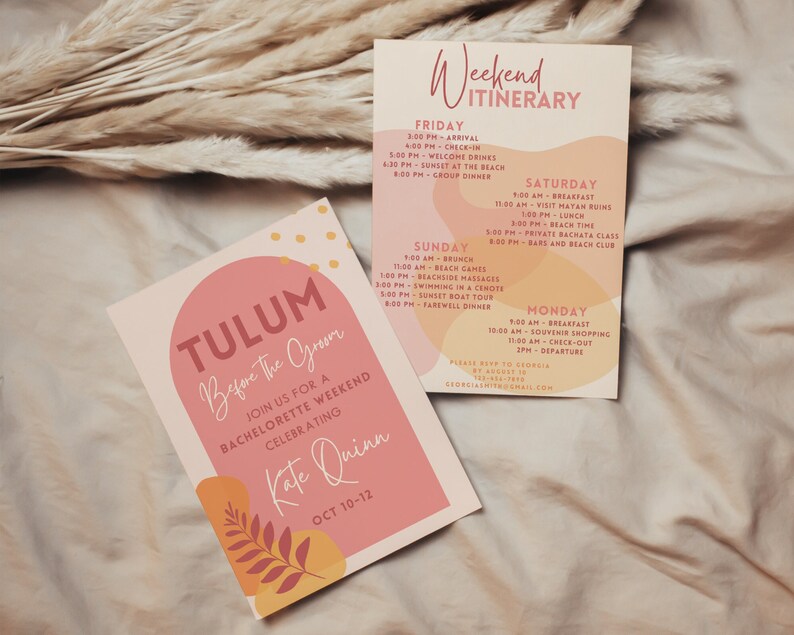 Weekend
ITINERARY
FRIDAY
3:00 PM - ARRIVAL
4:00 PM - CHECK-IN
5:00 PM - WELCOME DRINKS
6:30 PM - SUNSET AT THE BEACH
8:00 PM - GROUP DINNER
SATURDAY
9:00 AM - BREAKFAST
11:00 AM - VISIT MAYAN RUINS
1:00 PM - LUNCH
3:00 PM - BEACH TIME
5:00 PM - PRIVATE BACHATA CLASS
8:00 PM - BARS AND BEACH CLUB
SUNDAY
9:00 AM - BRUNCH
11:00 AM - BEACH GAMES
1:00 PM - BEACHSIDE MASSAGES
3:00 PM - SWIMMING IN A CENOTE
5:00 PM - SUNSET BOAT TOUR
8:00 PM - FAREWELL DINNER
MONDAY
9:00 AM - BREAKFAST
10:00 AM - SOUVENIR SHOPPING
11:00 AM - CHECK-OUT
2PM - DEPARTURE
PLEASE RSVP TO GEORGIA
BY AUGUST 10
123-456-7890
GEORGIASMITH@GMAIL.COM
TULUM
Before the Groom
JOIN US FOR A
BACHELORETTE WEEKEND
CELEBRATING
Kate Quinn
OCT 10-12